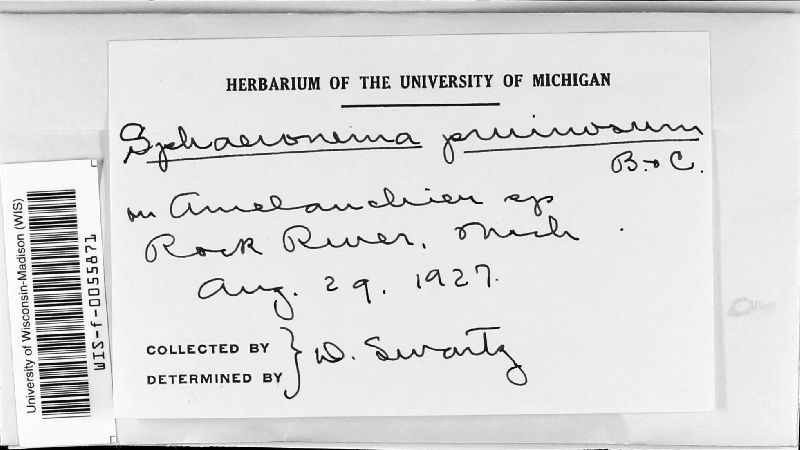 HERBARIUM OF THE UNIVERSITY OF MICHIGAN
Sphaeronema pruinosum
B. & C.
on Amelanchier sp
Rock River, Mich.
Aug. 29. 1927.
COLLECTED BY
DETERMINED BY
D. Swartz
University of Wisconsin-Madison (WIS)
WIS-f-0055871